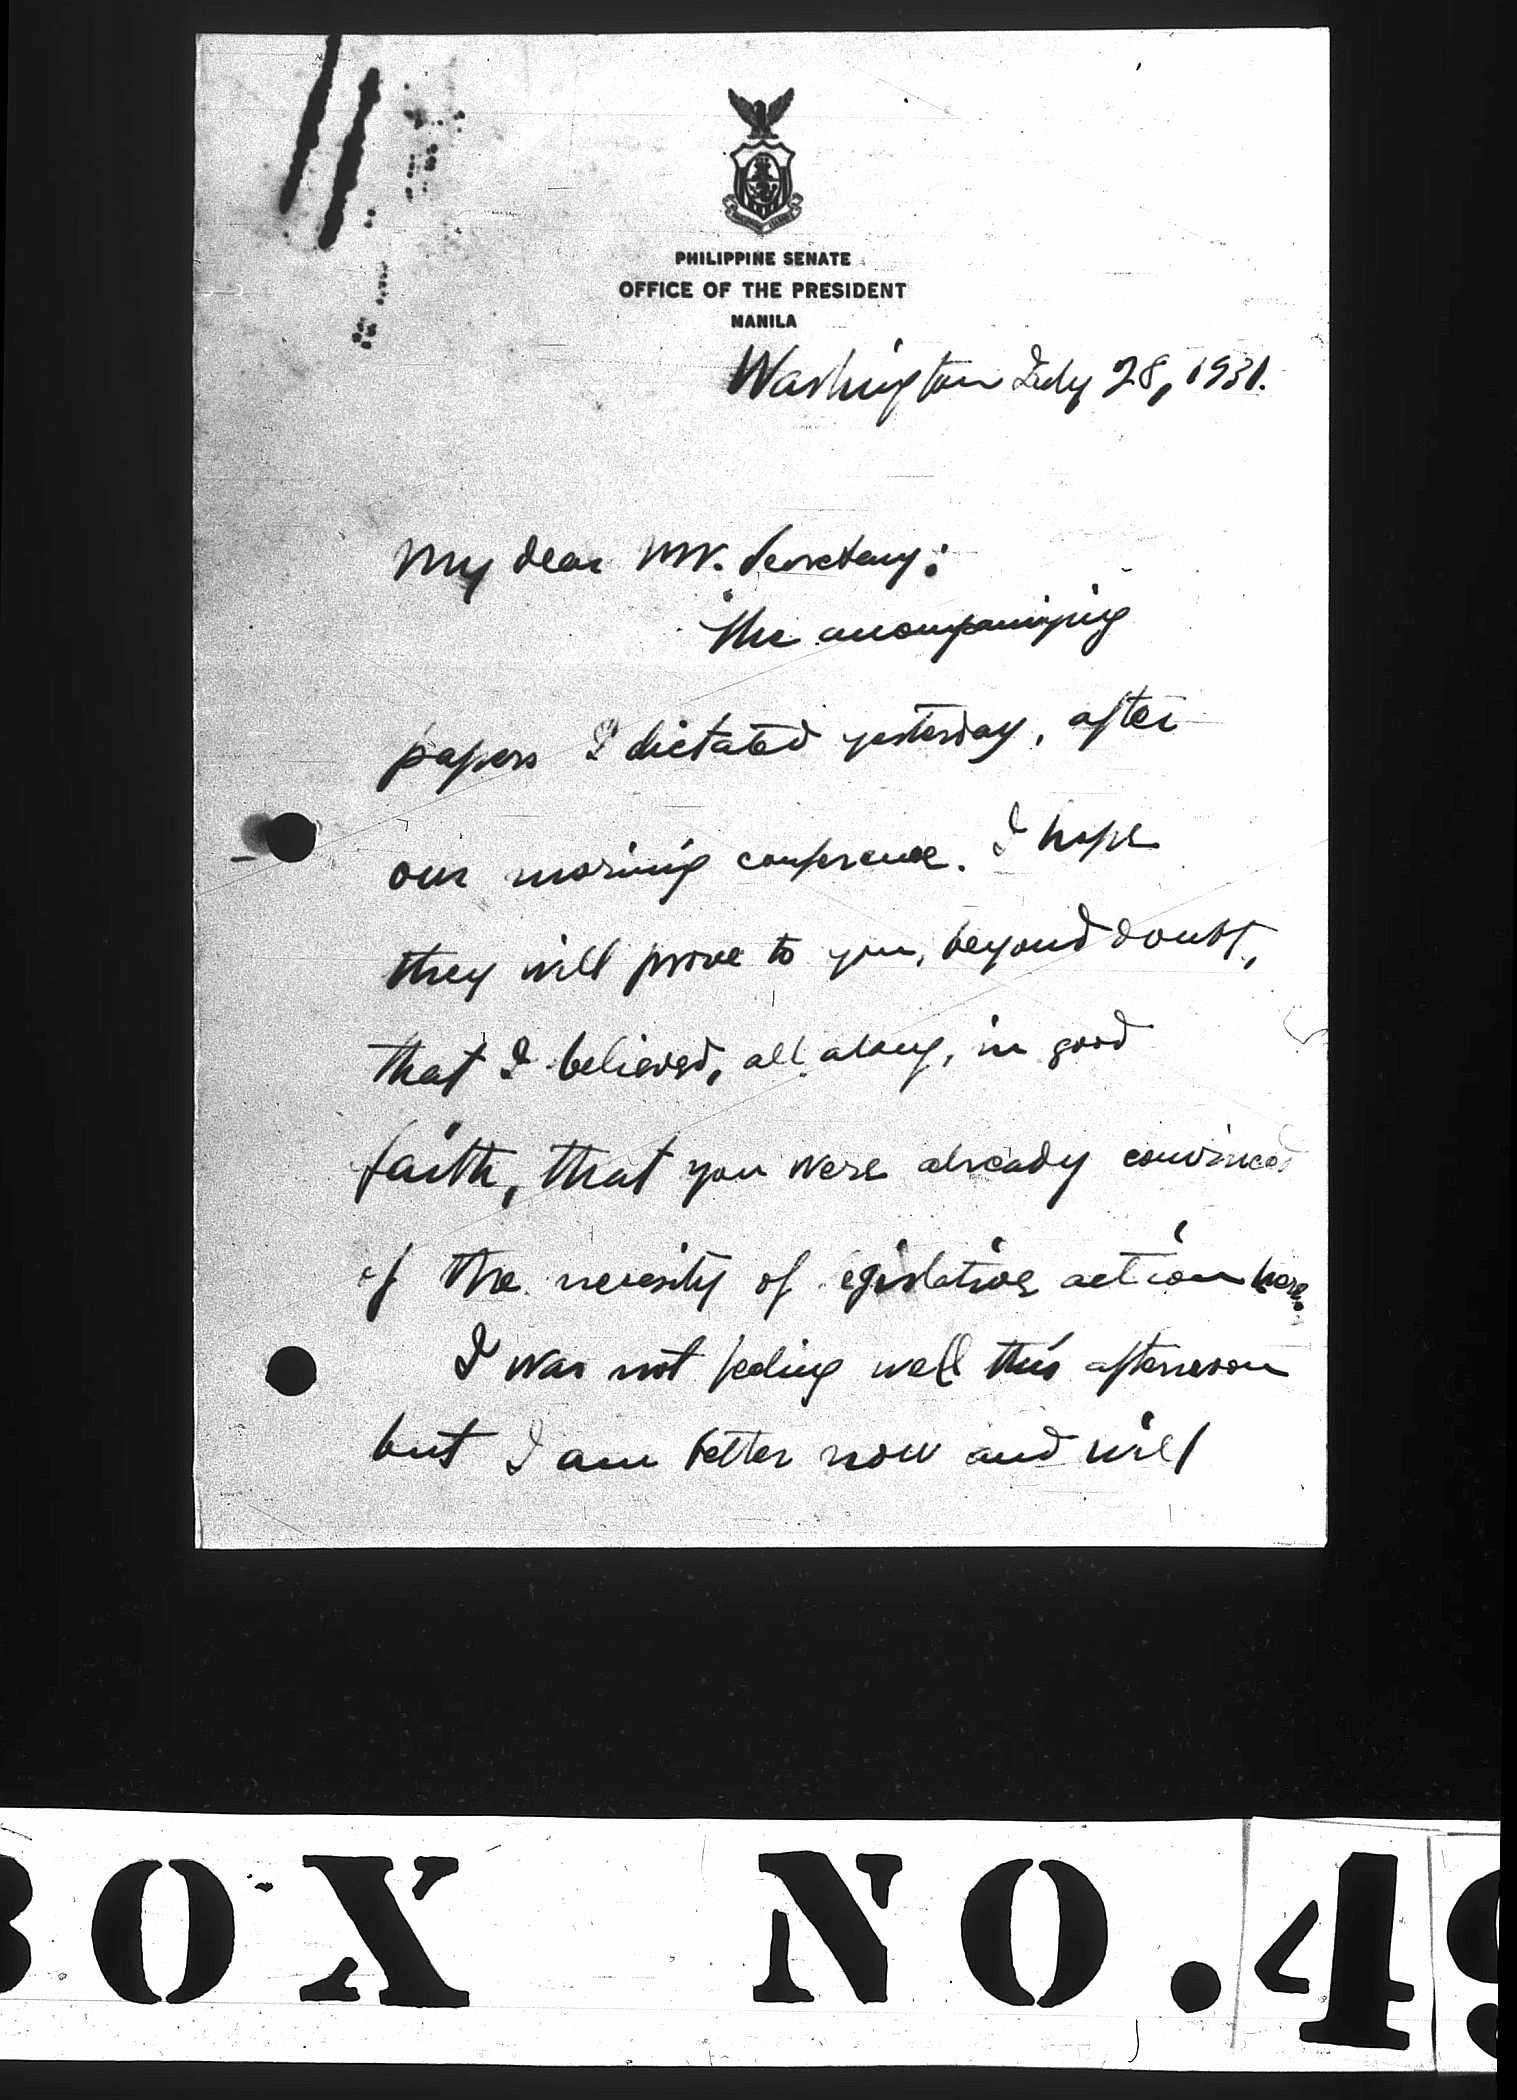 PHILIPPINE SENATE
OFFICE OF THE PRESIDENT
MANILA
Washington July 28, 1931.
My dear Mr. Secretary:
The accompanying
papers I dictated yesterday, after
our morning conference. I hope
they will prove to you, beyond doubt,
that I believed, all along, in good
faith, that you were already convinced
of the necesity of legislative action here.
I was not feeling well this afternoon
but I am better now and will
BOX NO. 49